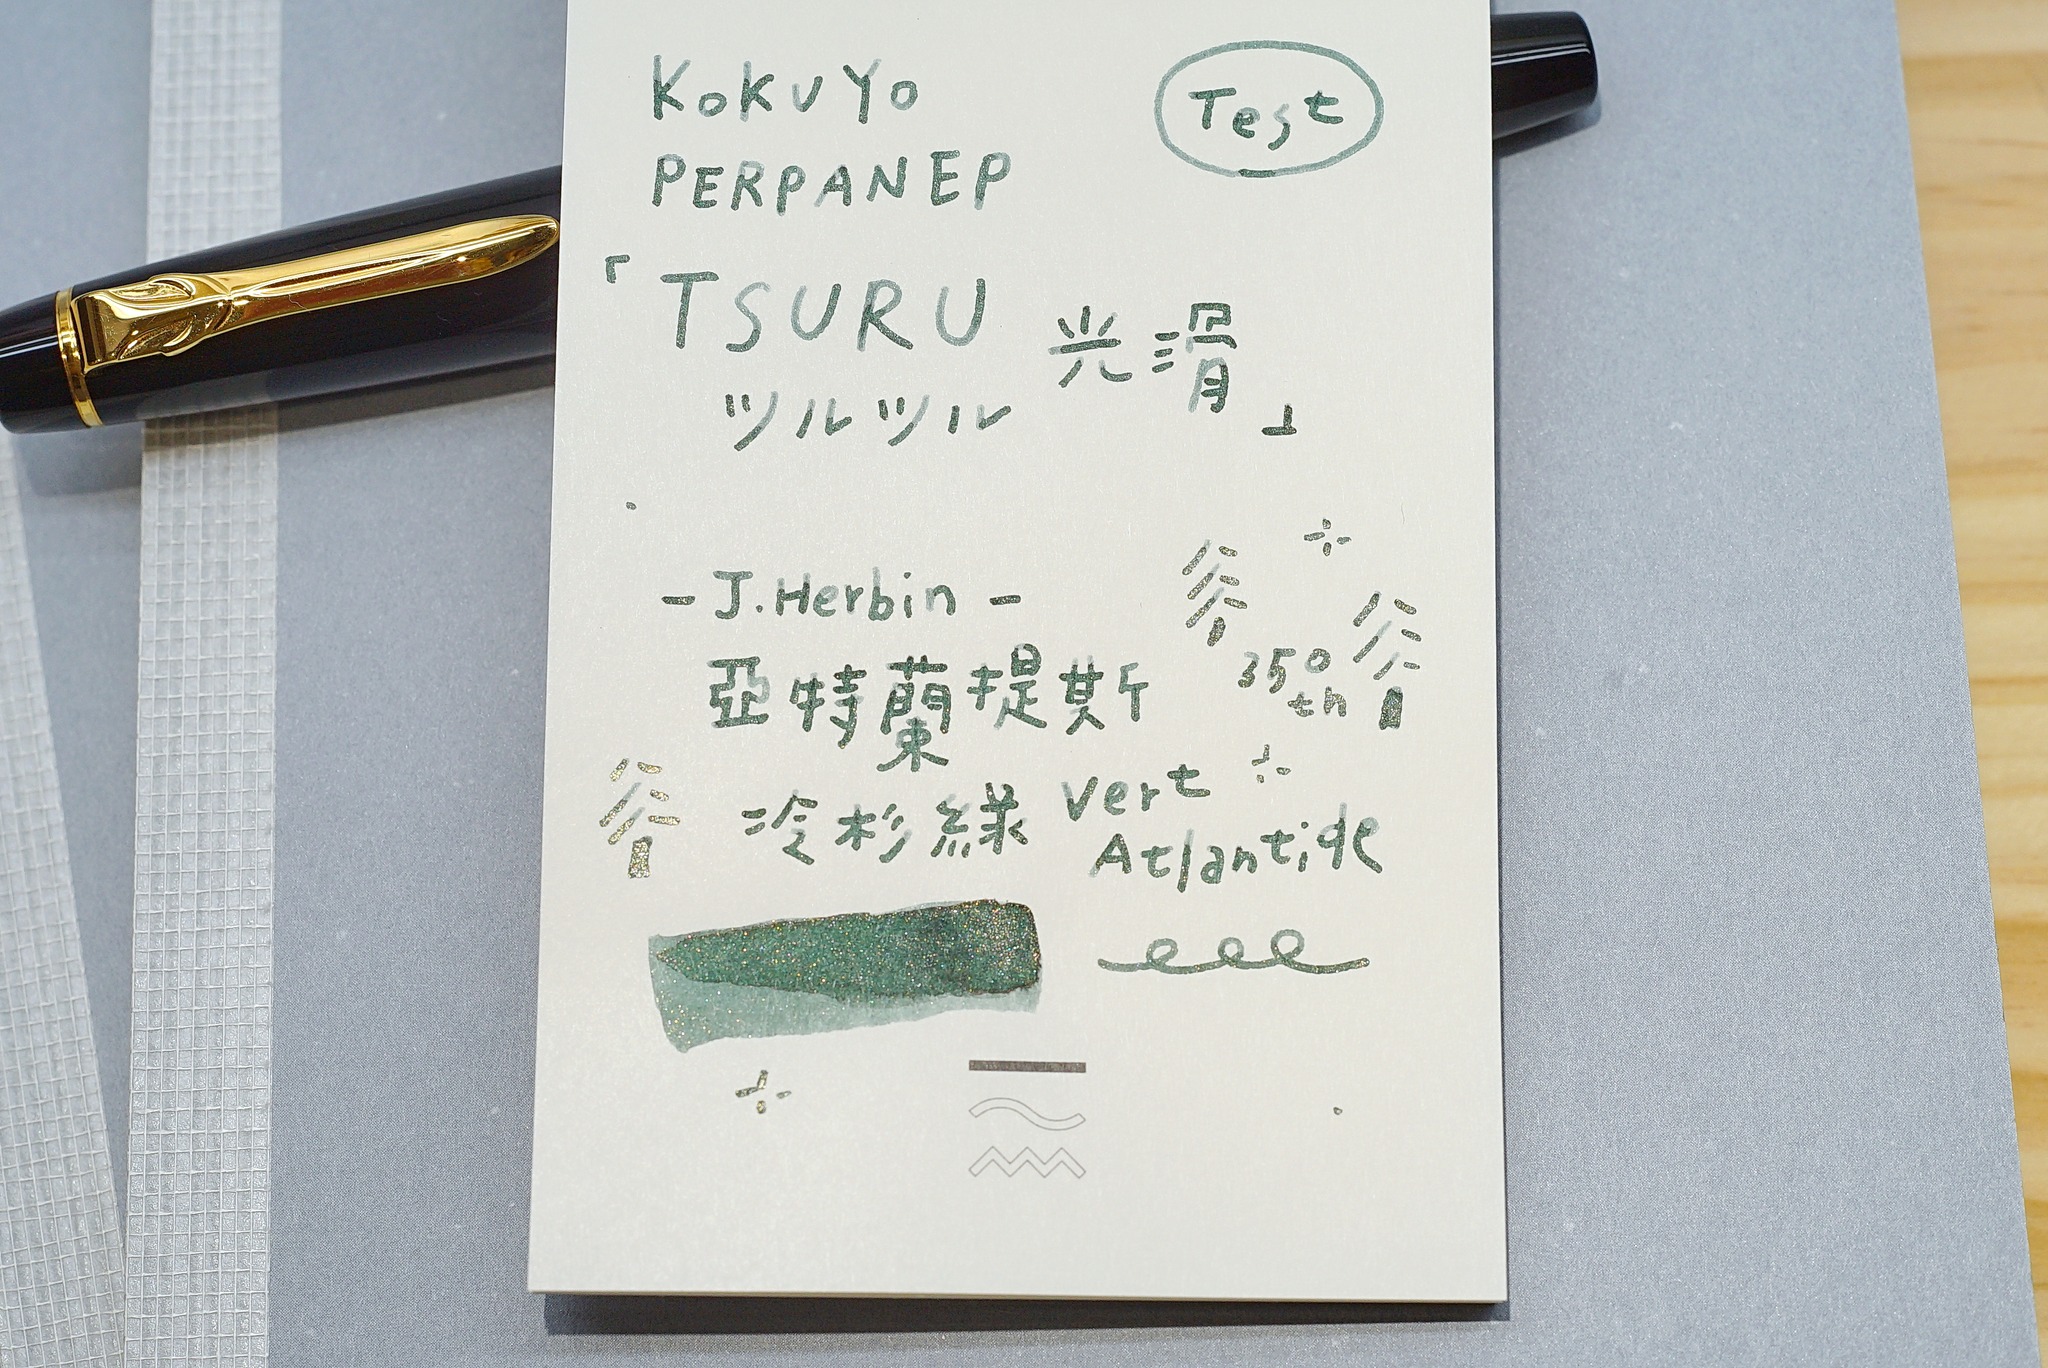 KOKUYO
Test
PERPANEP
「TSURU 光滑」
ツルツル
- J.Herbin -
亞特蘭提斯
350th
冷杉綠 Vert
Atlantide